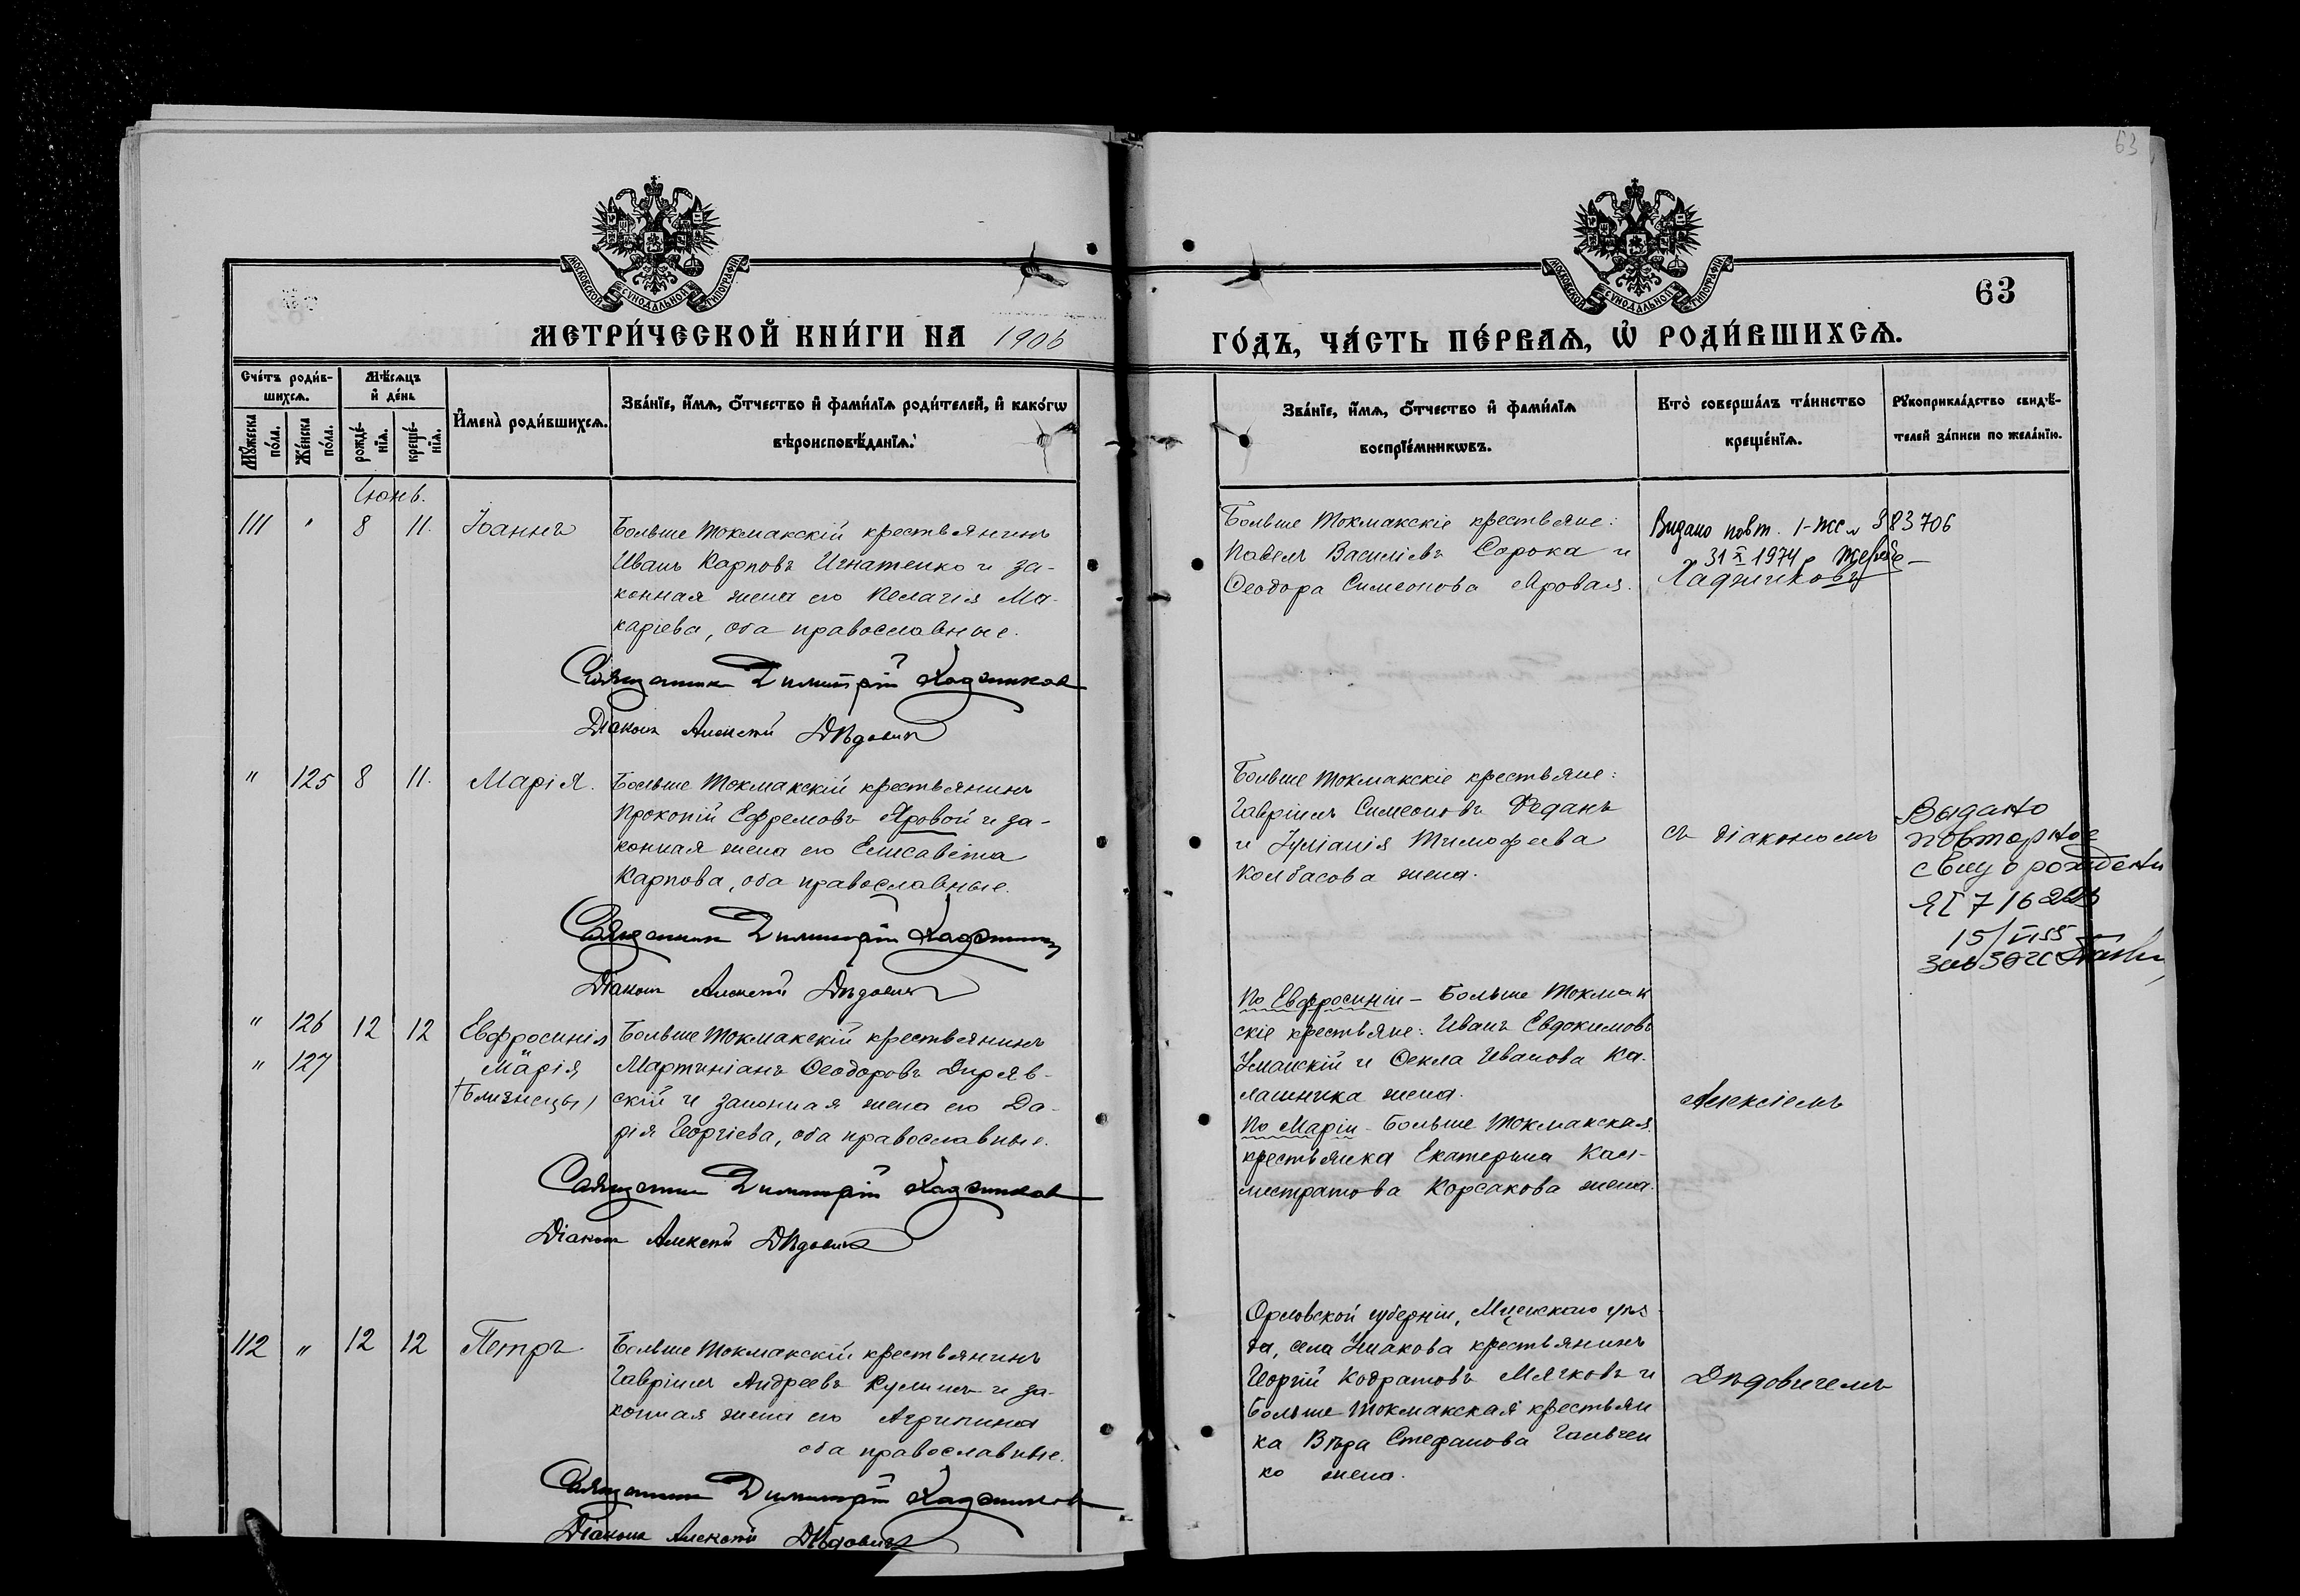 63
МОСКОВСКОЙ СУНОДАЛЬНОЙ ТИПОГРАФІИ
МОСКОВСКОЙ СУНОДАЛЬНОЙ ТИПОГРАФІИ
63
МЕТРИ́ЧЕСКОЙ КНИ́ГИ НА 1906
ГО́ДЪ, ЧА́СТЬ ПЕ́РВАѦ, Ѡ҆ РОДИ́ВШИХСѦ.
Сче́тъ роди́в-
шихсѧ.
Мѣ́сѧцъ
и҆ де́нь
Мꙋ́жеска
по́ла.
Же́нска
по́ла.
рожде́-
нїѧ.
креще́-
нїѧ.
И҆мена̀ роди́вшихсѧ.
Зва́нїе, и҆́мѧ, ѻ҆́тчество и҆ фами́лїѧ роди́телей, и҆ како́гѡ
вѣроисповѣ́данїѧ.
Зва́нїе, и҆́мѧ, ѻ҆́тчество и҆ фами́лїѧ
воспрїе́мникѡвъ.
Кто̀ соверша́лъ та́инство
креще́нїѧ.
Рꙋкоприкла́дство свидѣ́-
телей за́писи по жела́нїю.
Іюнь.
111 " 8 11. Іоаннъ
Больше Токмакскій крестьянинъ
Иванъ Карповъ Игнатенко и за-
конная жена его Пелагія Ма-
каріева, оба православные.
Священникъ Димитрій Ладжиков
Діаконъ Алексѣй Дѣдович
Больше Токмакскіе крестьяне:
Павелъ Василіевъ Сорока и
Ѳеодора Симеонова Яровая.
Видано повт. 1-жс № 383706
31 X 1974 р
Ладжиковъ
" 125 8 11. Марія.
Больше Токмакскій крестьянинъ
Прокопій Ефремовъ Яровой и за-
конная жена его Елисавета
Карпова, оба православные.
Священникъ Димитрій
Діаконъ Алексѣй Дѣдович
Больше Токмакскіе крестьяне:
Гавріилъ Симеоновъ Ѳеданъ
и Іуліанія Тимофеева
Колбасова жена.
съ діакономъ
Выдано
повторное
с-ву о рождени
15/VI 55
" 126 12 12 Евфросинія
" 127 Марія
(близнецы)
Больше Токмакскій крестьянинъ
Мартиніанъ Ѳеодоровъ Диряв-
скій и законная жена его Да-
рія Георгіева, оба православные.
Священникъ Димитрій Ладжиков
Діаконъ Алексѣй Дѣдович
По Евфросиніи - Больше Токмак
скіе крестьяне: Иванъ Евдокимовъ
Уманскій и Ѳекла Иванова Ка-
лашника жена.
По Маріи - Больше Токмакская
крестьянка Екатерина Кал-
листратова Корсакова жена.
Алексіемъ
112 " 12 12 Петръ
Больше Токмакскій крестьянинъ
Гавріилъ Андреевъ Кулишъ и за-
конная жена его Агрипина
оба православные.
Священникъ Димитрій Ладжиков
Діаконъ Алексѣй Дѣдович
Орловской губерніи, Мценскаго уѣз-
да, села крестьянинъ
Георгій Кодратовъ Мячковъ и
Больше Токмакская крестьян
ка Вѣра Стефанова Гальчен
ко жена.
Дѣдовичемъ